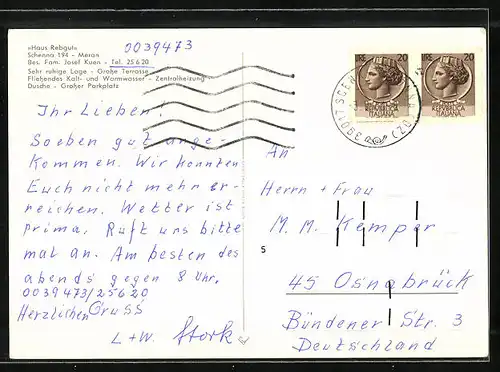 »Haus Rebgut«
Schenna 194 - Meran
Bes. Fam. Josef Kuen - Tel. 25620
Sehr ruhige Lage - Große Terrasse
Fließendes Kalt- und Warmwasser - Zentralheizung
Dusche - Großer Parkplatz
0039473
Ihr Lieben!
Soeben gut ange-
kommen. Wir konnten
Euch nicht mehr er-
reichen. Wetter ist
prima. Ruft uns bitte
mal an. Am besten des
abends gegen 8 Uhr.
0039473/25620
Herzlichen Gruss
L+W. Stork
LIRE 20
REPUBBLICA
ITALIANA
LIRE 20
REPUBBLICA
ITALIANA
39017 SCEN
(BZ)
An
Herrn + Frau
M. M. Kemper
5
45 Osnabrück
Bündener Str. 3
Deutschland